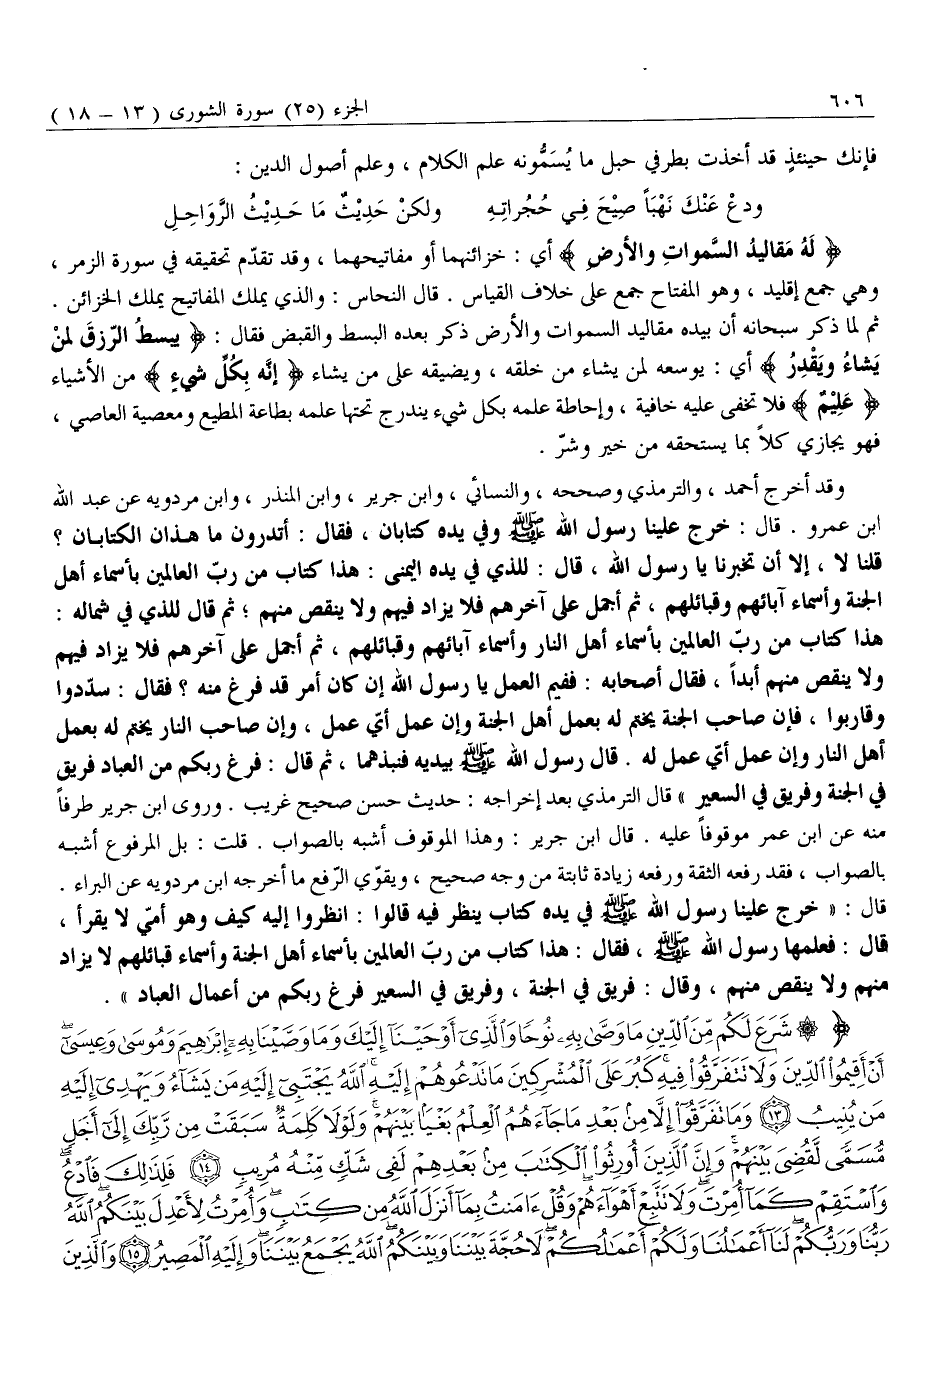 ٦٠٦
الجزء (٢٥) سورة الشورى ( ١٣ – ١٨ )
فإنك حينئذٍ قد أخذت بطرفي حبل ما يُسَمُّونه علم الكلام ، وعلم أصول الدين :
ودعْ عَنْكَ نَهْبَاً صِيْحَ فِي حُجُراتِهِ ولكنْ حَدِيْثٌ مَا حَدِيْثُ الرَّوَاحِلِ
﴿ لَهُ مَقاليدُ السَّمواتِ والأرضِ ﴾ أي : خزائنهما أو مفاتيحهما ، وقد تقدّم تحقيقه في سورة الزمر ،
وهي جمع إقليد ، وهو المفتاح جمع على خلاف القياس . قال النحاس : والذي يملك المفاتيح يملك الخزائن .
ثم لما ذكر سبحانه أن بيده مقاليد السموات والأرض ذكر بعده البسط والقبض فقال : ﴿ يبسطُ الرّزقَ لمنْ
يَشاءُ ويَقْدِرُ ﴾ أي : يوسعه لمن يشاء من خلقه ، ويضيقه على من يشاء ﴿ إنَّه بِكُلِّ شيءٍ ﴾ من الأشياء
﴿ عَلِيْمٌ ﴾ فلا تخفى عليه خافية ، وإحاطة علمه بكل شيء يندرج تحتها علمه بطاعة المطيع ومعصية العاصي ،
فهو يجازي كلاً بما يستحقه من خير وشرّ .
وقد أخرج أحمد ، والترمذي وصححه ، والنسائي ، وابن جرير ، وابن المنذر ، وابن مردويه عن عبد الله
ابن عمرو . قال : خرج علينا رسول الله ﷺ وفي يده كتابان ، فقال : أتدرون ما هذان الكتابان ؟
قلنا لا ، إلا أن تخبرنا يا رسول الله ، قال : للذي في يده اليمنى : هذا كتاب من ربّ العالمين بأسماء أهل
الجنة وأسماء آبائهم وقبائلهم ، ثم أجمل على آخرهم فلا يزاد فيهم ولا ينقص منهم ؛ ثم قال للذي في شماله :
هذا كتاب من ربّ العالمين بأسماء أهل النار وأسماء آبائهم وقبائلهم ، ثم أجمل على آخرهم فلا يزاد فيهم
ولا ينقص منهم أبداً ، فقال أصحابه : ففيم العمل يا رسول الله إن كان أمر قد فرغ منه ؟ فقال : سدّدوا
وقاربوا ، فإن صاحب الجنة يختم له بعمل أهل الجنة وإن عمل أيّ عمل ، وإن صاحب النار يختم له بعمل
أهل النار وإن عمل أيّ عمل له . قال رسول الله ﷺ بيديه فنبذهما ، ثم قال : فرغ ربكم من العباد فريق
في الجنة وفريق في السعير » قال الترمذي بعد إخراجه : حديث حسن صحيح غريب . وروى ابن جرير طرفاً
منه عن ابن عمر موقوفاً عليه . قال ابن جرير : وهذا الموقوف أشبه بالصواب . قلت : بل المرفوع أشبه
بالصواب ، فقد رفعه الثقة ورفعه زيادة ثابتة من وجه صحيح ، ويقوّي الرّفع ما أخرجه ابن مردويه عن البراء .
قال : « خرج علينا رسول الله ﷺ في يده كتاب ينظر فيه قالوا : انظروا إليه كيف وهو أميّ لا يقرأ ،
قال : فعلمها رسول الله ﷺ ، فقال : هذا كتاب من ربّ العالمين بأسماء أهل الجنة وأسماء قبائلهم لا يزاد
منهم ولا ينقص منهم ، وقال : فريق في الجنة ، وفريق في السعير فرغ ربكم من أعمال العباد » .
﴿ ۞ شَرَعَ لَكُم مِّنَ ٱلدِّينِ مَا وَصَّىٰ بِهِۦ نُوحًا وَٱلَّذِىٓ أَوْحَيْنَآ إِلَيْكَ وَمَا وَصَّيْنَا بِهِۦٓ إِبْرَٰهِيمَ وَمُوسَىٰ وَعِيسَىٰٓ ۖ
أَنْ أَقِيمُوا۟ ٱلدِّينَ وَلَا تَتَفَرَّقُوا۟ فِيهِ ۚ كَبُرَ عَلَى ٱلْمُشْرِكِينَ مَا تَدْعُوهُمْ إِلَيْهِ ۚ ٱللَّهُ يَجْتَبِىٓ إِلَيْهِ مَن يَشَآءُ وَيَهْدِىٓ إِلَيْهِ
مَن يُنِيبُ ﴿١٣﴾ وَمَا تَفَرَّقُوٓا۟ إِلَّا مِنۢ بَعْدِ مَا جَآءَهُمُ ٱلْعِلْمُ بَغْيًۢا بَيْنَهُمْ ۚ وَلَوْلَا كَلِمَةٌ سَبَقَتْ مِن رَّبِّكَ إِلَىٰٓ أَجَلٍ
مُّسَمًّى لَّقُضِىَ بَيْنَهُمْ ۚ وَإِنَّ ٱلَّذِينَ أُورِثُوا۟ ٱلْكِتَٰبَ مِنۢ بَعْدِهِمْ لَفِى شَكٍّ مِّنْهُ مُرِيبٍ ﴿١٤﴾ فَلِذَٰلِكَ فَٱدْعُ ۖ
وَٱسْتَقِمْ كَمَآ أُمِرْتَ ۖ وَلَا تَتَّبِعْ أَهْوَآءَهُمْ ۖ وَقُلْ ءَامَنتُ بِمَآ أَنزَلَ ٱللَّهُ مِن كِتَٰبٍ ۖ وَأُمِرْتُ لِأَعْدِلَ بَيْنَكُمُ ۖ ٱللَّهُ
رَبُّنَا وَرَبُّكُمْ ۖ لَنَآ أَعْمَٰلُنَا وَلَكُمْ أَعْمَٰلُكُمْ ۖ لَا حُجَّةَ بَيْنَنَا وَبَيْنَكُمُ ۖ ٱللَّهُ يَجْمَعُ بَيْنَنَا ۖ وَإِلَيْهِ ٱلْمَصِيرُ ﴿١٥﴾ وَٱلَّذِينَ